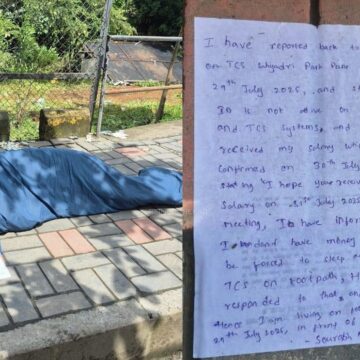 I have reported back to
on TCS Sahyadri Park Pune
29th July 2025, and
ID is not live on
and TCS systems, and
received my salary
Confirmed on 30th July
"I hope you
Salary on 31st July 2025
meeting, I have infor
I have money
be forced to sleep
TCS on footpath,
responded to that, an
Hence I am living on
29th July 2025, in front of
- Saurabh